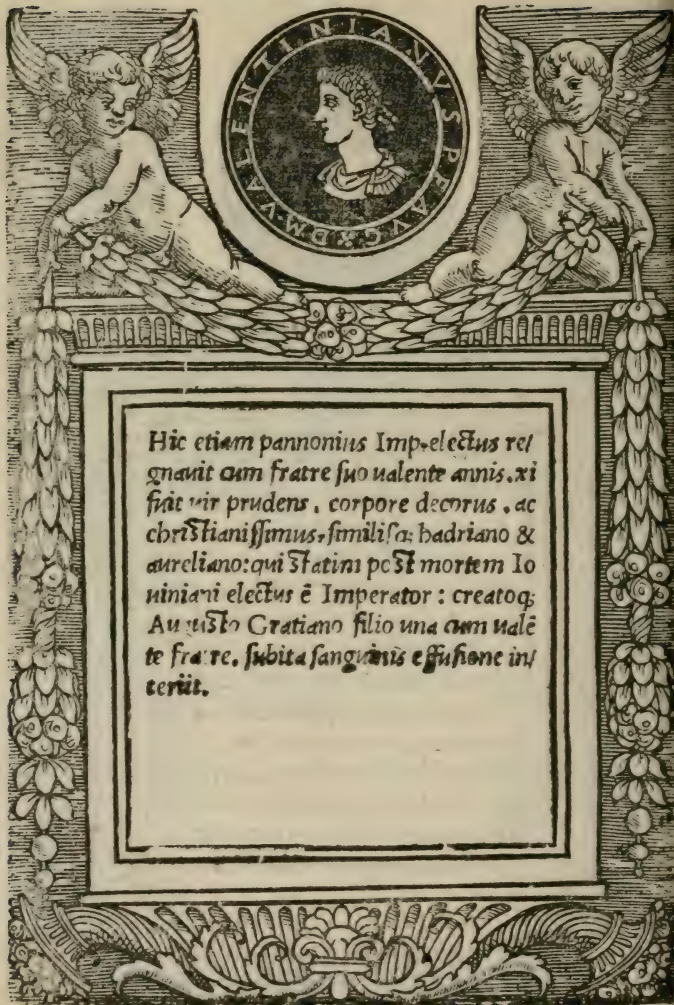 DM·VALENTINIANVS PF AVG
Hic etiam pannonius Imp. electus re/
gnauit cum fratre suo ualente annis .xi
fuit uir prudens . corpore decorus . ac
christianissimus. similisq; hadriano &
aureliano: qui statim post mortem Io
uiniani electus ē Imperator : creatoq;
Augusto Gratiano filio una cum ualē
te fratre. subita sanguinis effusione in/
teriit.